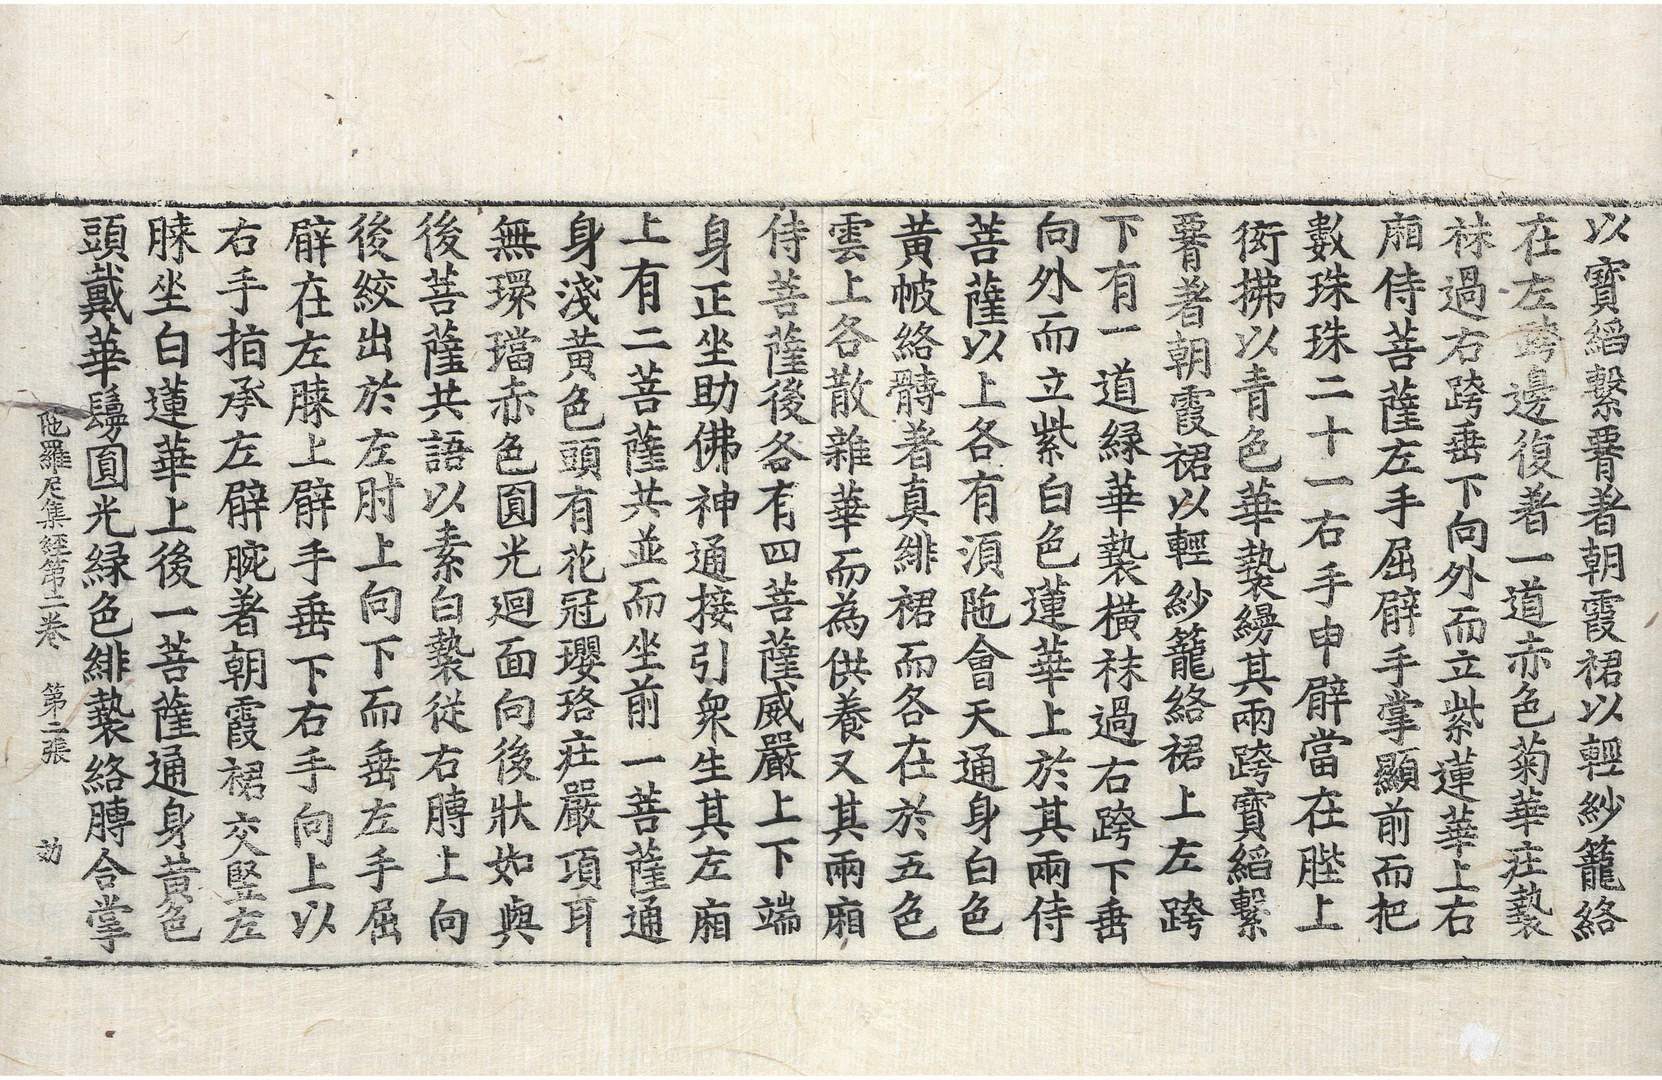 以寶縚繫署著朝霞裙以輕紗籠絡
在左跨邊復著一道赤色菊華疘褺
袜過右跨垂下向外而立紫蓮華上右
廂侍菩薩左手屈臂手掌顯前而把
數珠珠二十一右手申臂當在䏶上
銜拂以青色華褺縵其兩跨寶縚繫
著朝霞裙以輕紗籠絡裙上左跨
下有一道緑華褺橫袜過右跨下垂
向外而立紫白色蓮華上於其兩侍
菩薩以上各有湏陁會天通身白色
黃帔絡髆著真緋裙而各在於五色
雲上各散雜華而為供養又其兩廂
侍菩薩後各有四菩薩威嚴上下端
身正坐助佛神通接引眾生其左廂
上有二菩薩共並而坐前一菩薩通
身淺黃色頭有花冠瓔珞疘嚴項耳
無環璫赤色圎光迴面向後狀如與
後菩薩共語以素白褺從右膊上向
後絞出於左肘上向下而垂左手屈
臂在左膝上臂手垂下右手向上以
右手指承左臂腕著朝霞裙交豎左
膝坐白蓮華上後一菩薩通身黃色
頭戴華鬘圎光緑色緋褺絡膊合掌
陁羅尼集經第二卷　第二張　㓛